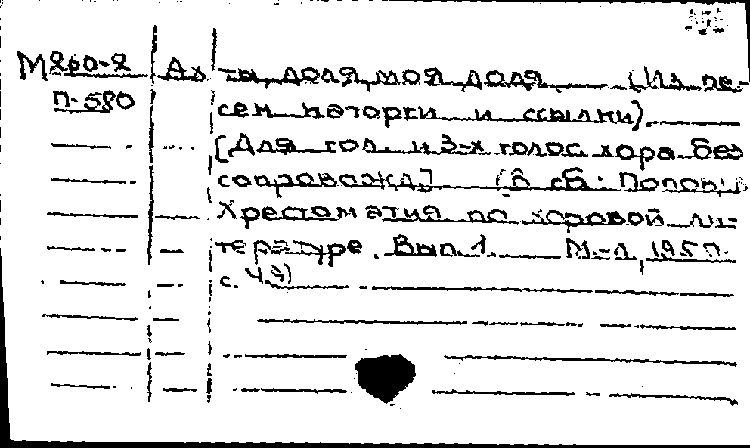 М 260-2 Ах ты, доля, моя доля (Из пе-
П-580 сен каторги и ссылки).
[Для гол. и 3-х голос. хора без
сопровожд.] (В сб.: Поповы
Хрестоматия по хоровой ли-
тературе. Вып. 1. М.-Л.,
с. 43)